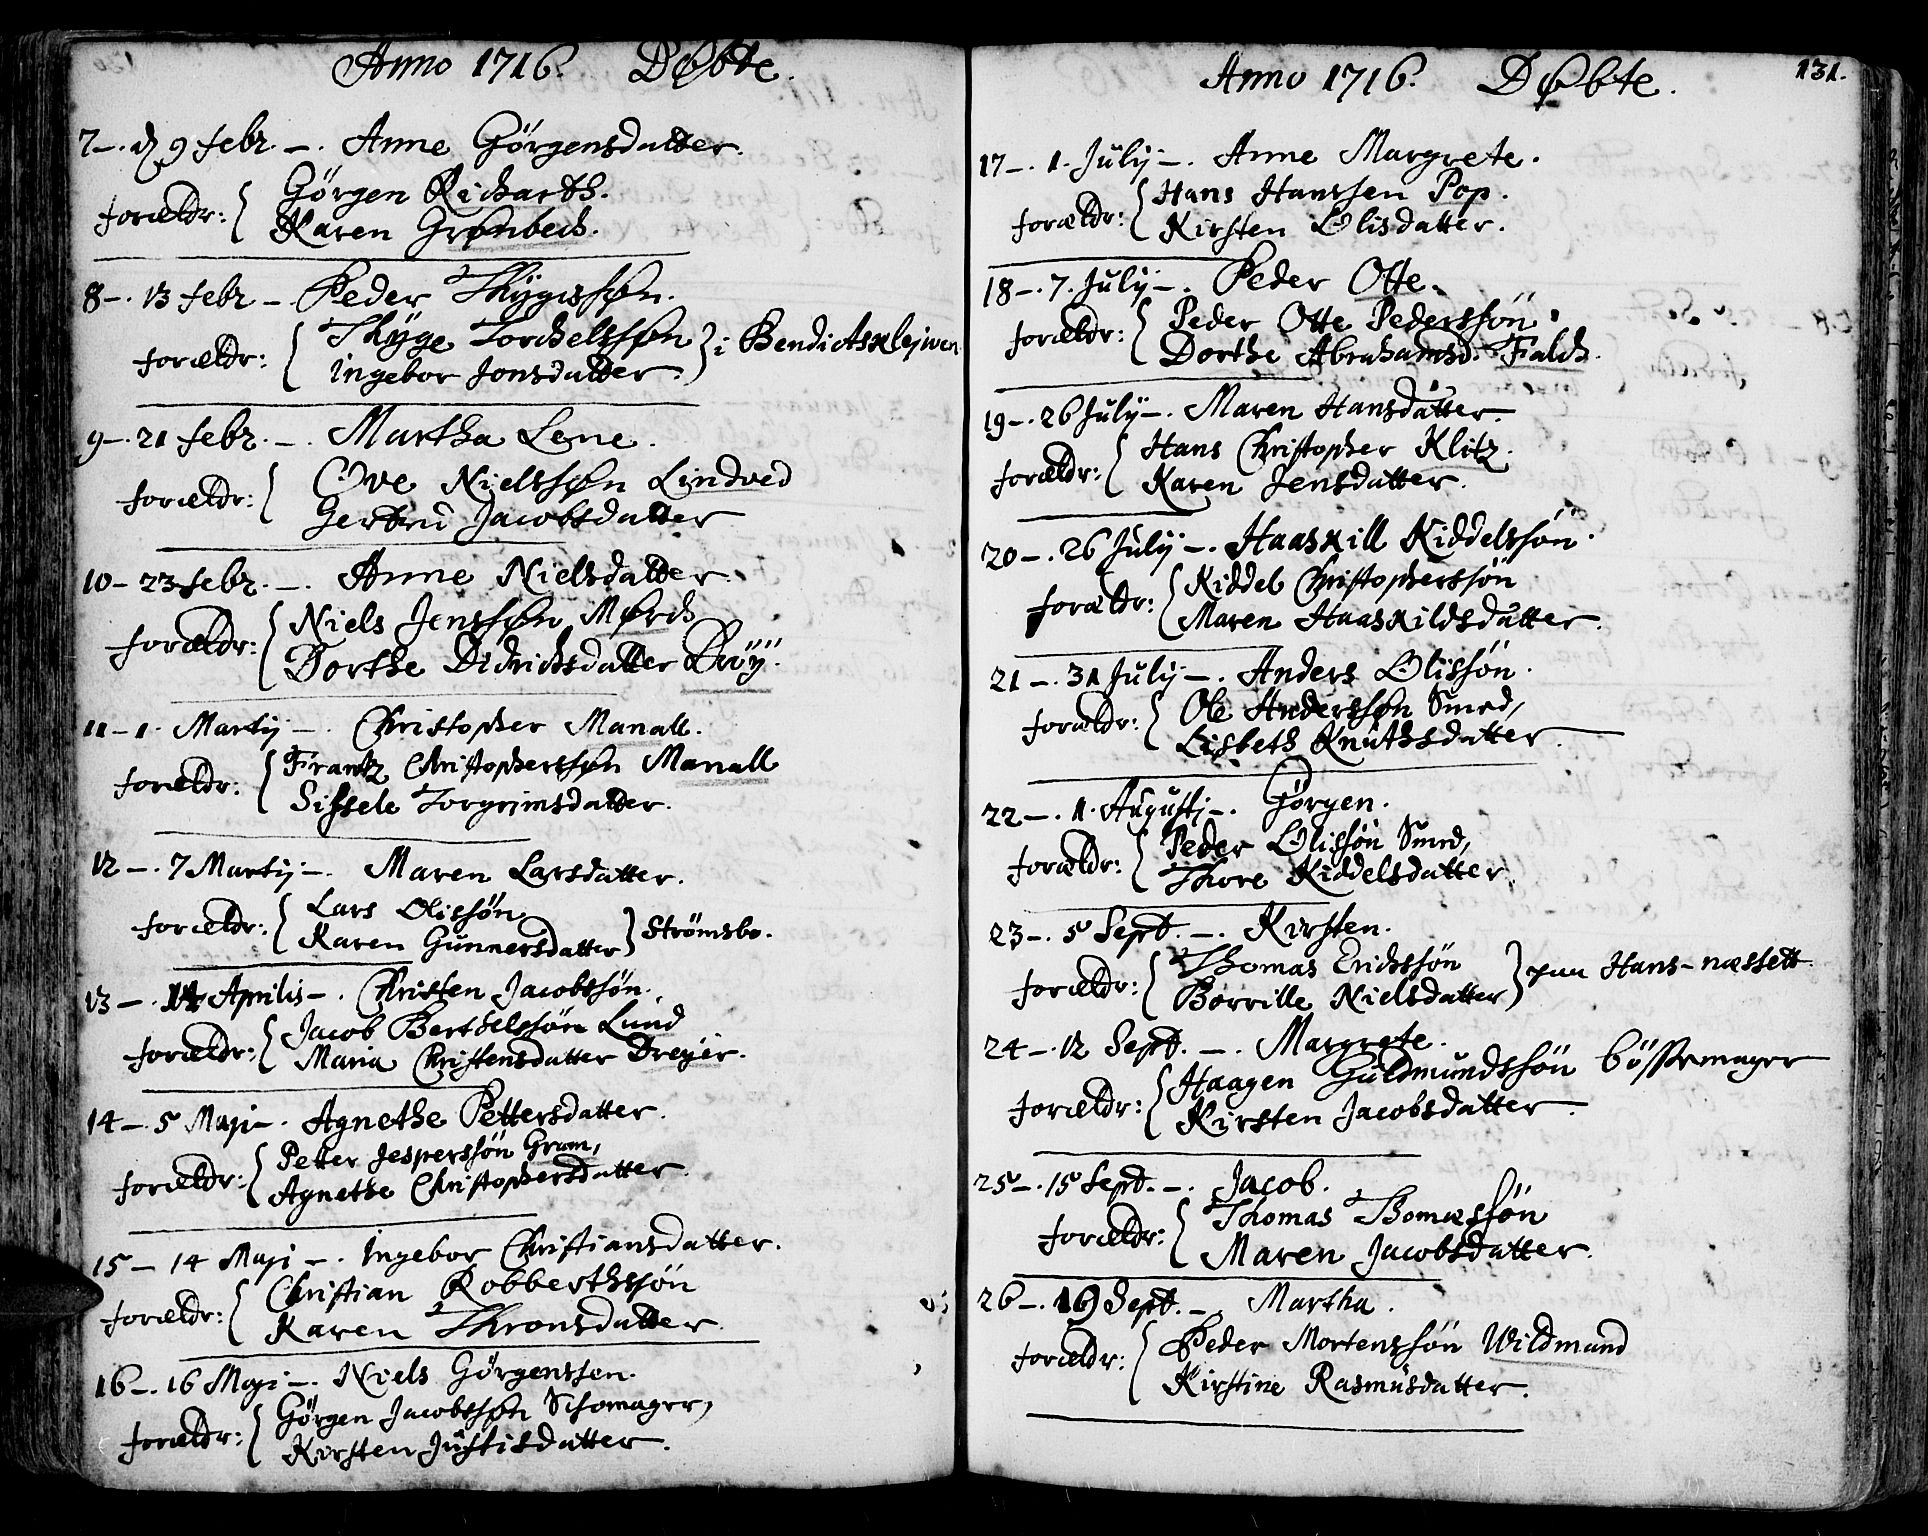 Anno 1716. Døbte.
7 –. d 9 febr. –. Anne Görgensdatter.
forældr: { Görgen Richarth.
Karen Grønbech.
8 –. 13 febr –. Peder Thygessøn.
forældr: { Thÿge Torchelssøn } i Bendictsklejwen
Ingebor Jonsdatter.
9 –. 21 febr. –. Martha Lene.
forældr: { Ove Nielssøn Lindved
Gertrud Jacobsdatter
10 – 23 febr. –. Anne Nielsdatter.
forældr: { Niels Jenssøn Mørch
Dorthe Didrichsdatter Brÿy.
11 – 1. Martij –. Christopher Manall.
forældr: { Frantz Christopherssøn Manall
Sissele Torgrimsdatter.
12 –. 7 Martij –. Maren Larsdatter.
forældr: { Lars Olissön } Strömsbo.
Karen Gunnersdatter
13 –. 14 Aprilis –. Christen Jacobssön.
forældr: { Jacob Berthelssön Lund
Maria Christensdatter Dreyer.
14 –. 5 Maji –. Agnethe Pettersdatter.
forældr: { Petter Jesperssön Gram,
Agnethe Christophersdatter.
15 – 14 Maji –. Ingebor Christiansdatter.
forældr: { Christian Robberthssön
Karen Thronsdatter.
16 –. 16 Maji –. Niels Görgenssen.
forældr: { Görgen Jacobssøn Schomager,
Kirsten Justisdatter.
Anno 1716. Døbte. 131.
17 –. 1. Julij –. Anne Margrete.
forældr: { Hans Hanssen Pop.
Kirsten Olisdatter.
18 –. 7. Julij –. Peder Otte.
forældr: { Peder Otte Pederssön.
Dorthe Abrahamsd. Falch.
19 –. 26 Julij –. Maren Hansdatter.
forældr: { Hans Christopher Klitz.
Karen Jensdatter.
20 –. 26 Julij –. Haaskill Kiddelssön.
forældr: { Kiddel Christopherssön
Maren Haaskildsdatter.
21 –. 31 Julij –. Anders Olissön.
forældr: { Ole Anderssøn Smed,
Lisbeth Knuthsdatter.
22 –. 1. Augusti –. Gørgen.
forældr: { Peder Olissön Smed,
Thore Kiddelsdatter.
23 –. 5 Sept. –. Kirsten.
forældr: { Thomas Erichssön } paa Hans-næssett.
Borrille Nielsdatter
24 –. 12 Sept. –. Margrete.
forældr: { Haagen Guldmundssön bössemager
Kirsten Jacobsdatter.
25 –. 15 Sept. –. Jacob.
forældr: { Thomas Thomæssön
Maren Jacobsdatter.
26 –. 19 Sept. –. Martha.
forældr: { Peder Mortenssön Wildmand
Kirstine Rasmusdatter.